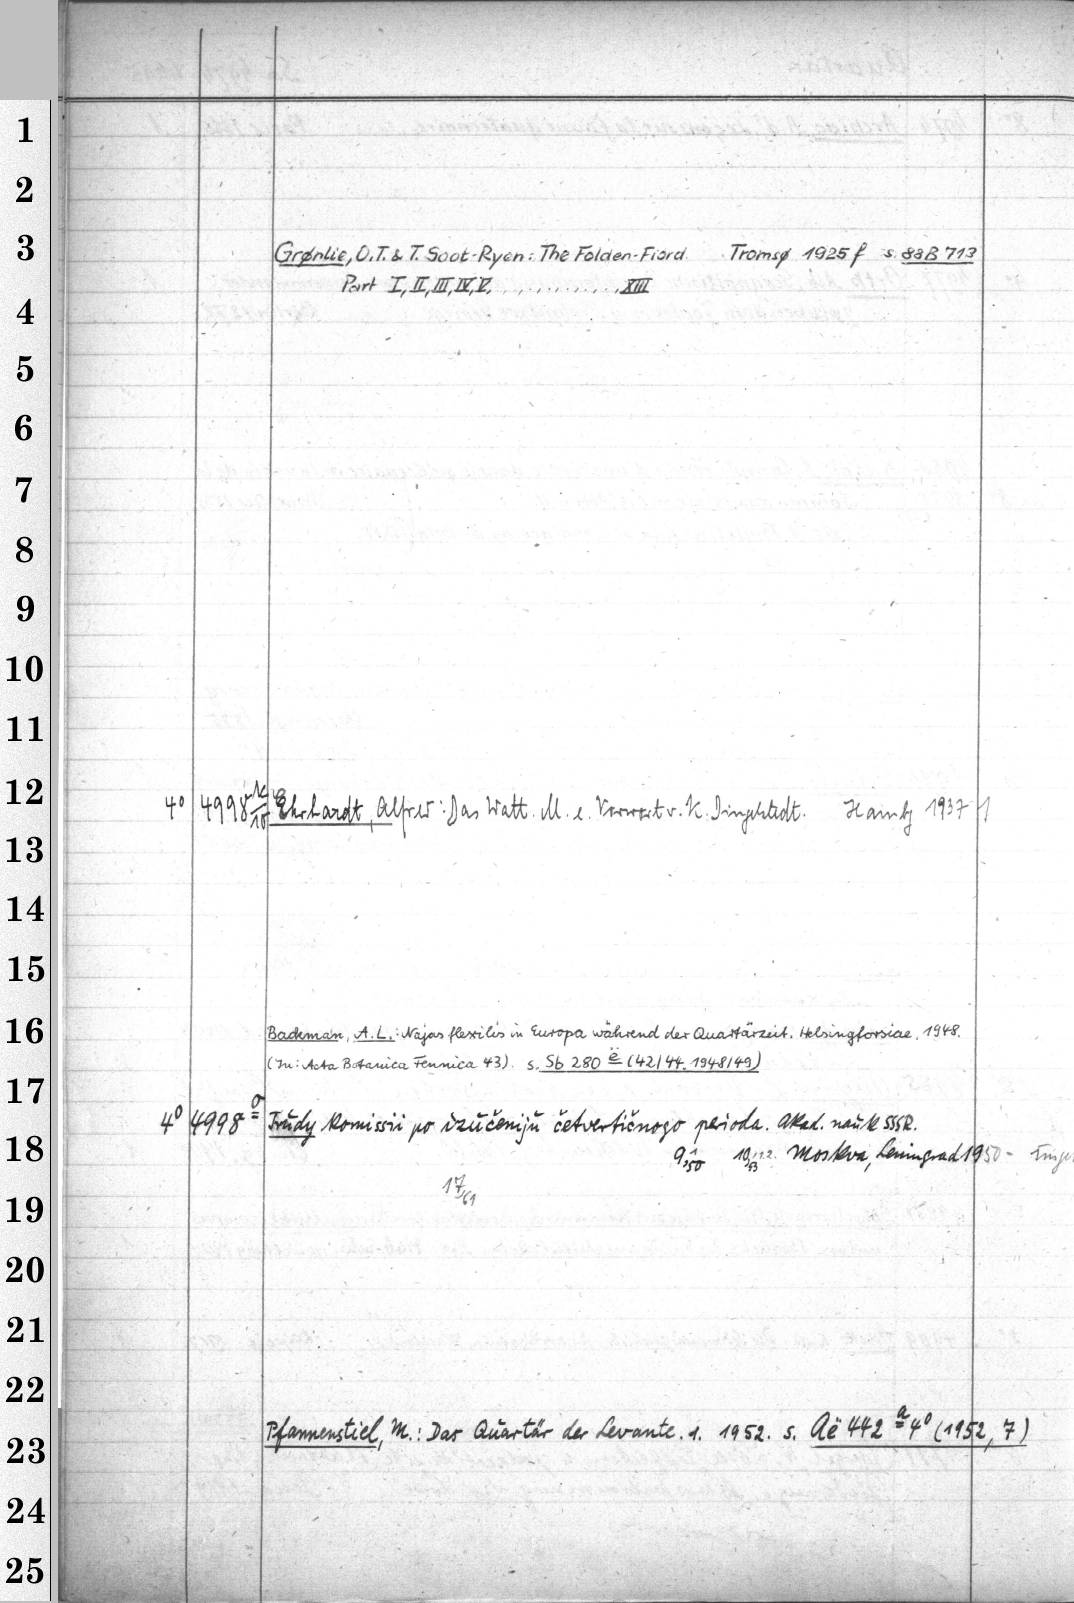 1
2
3
Grønlie, O.T. & T. Soot-Ryen: The Folden-Fiord. Tromsø 1925 f s. 88B 713
Part I, II, III, IV, V, . . . . . . . . . . . . XIII
4
5
6
7
8
9
10
11
12
4° 4998 k/10 Ehrhardt, Alfred: Das Watt. M. e. Vorwort v. K. Dingelstedt. Hambg 1937 1
13
14
15
16
Backman, A.L.: Najas flexilis in Europa während der Quartärzeit. Helsingforsiae. 1948.
(In: Acta Botanica Fennica 43). s. Sb 280 ë (42/44. 1948/49)
17
4° 4998 Trudy Komissii po izučeniju četvertičnogo perioda. Akad. nauk SSSR.
18
Moskva, Leningrad 1950 -
17/61
19
20
21
22
Pfannenstiel, M.: Das Quartär der Levante. 1. 1952. s. Aë 442 a 4° (1952, 7)
23
24
25